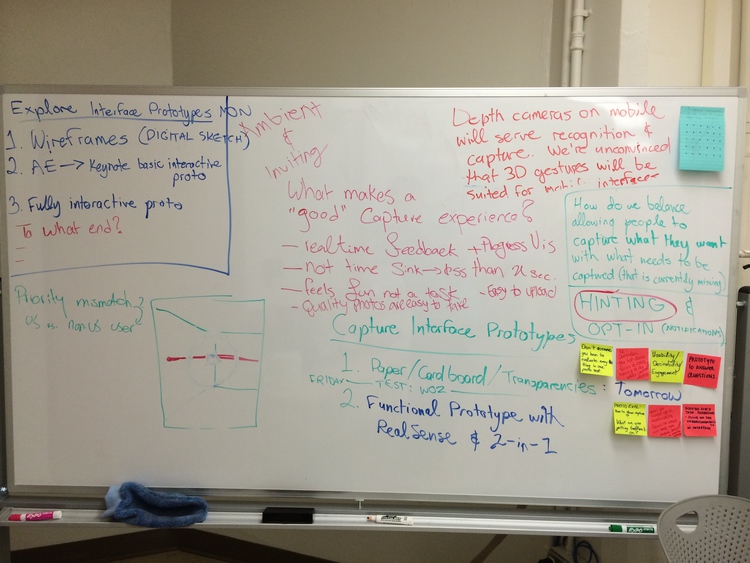 Explore Interface Prototypes MON
1. Wireframes (DIGITAL SKETCH)
2. AE → Keynote basic interactive
proto
3. Fully interactive proto
To what end?
Ambient
&
Inviting
Depth cameras on mobile
will serve recognition &
capture. We're unconvinced
that 3D gestures will be
suited for interfaces
What makes a
"good" Capture experience?
– realtime feedback + Progress Vis
– not time sink → less than x sec.
– feels fun not a task
- Easy to upload
- Quality photos are easy to take
How do we balance
allowing people to
capture what they want
with what needs to be
captured (that is currently missing)
HINTING &
OPT-IN (NOTIFICATIONS)
Priority mismatch?
US vs. non US user
Capture Interface Prototypes
1. Paper/Cardboard/Transparencies : Tomorrow
FRIDAY — TEST: WOZ
2. Functional Prototype with
RealSense & 2-in-1
Usability/
Desirability/
Engagement
PROTOTYPE
TO ANSWER
QUESTIONS
EXPO